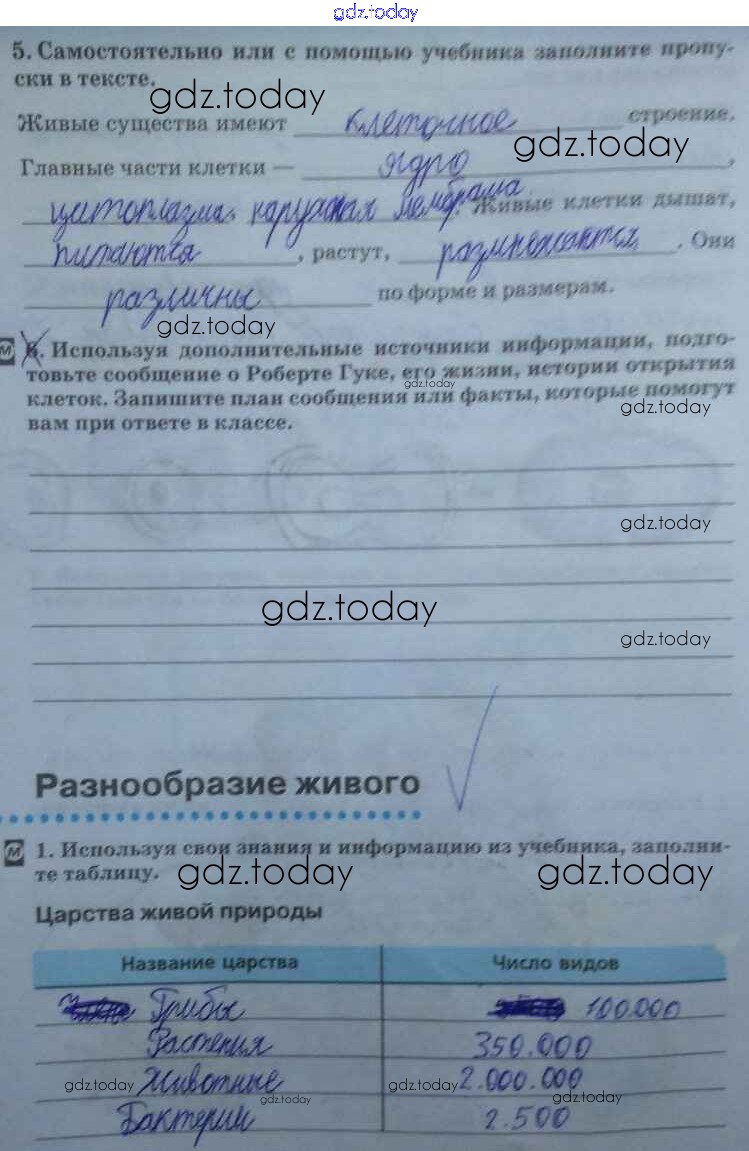 gdz.today
5. Самостоятельно или с помощью учебника заполните пропу-
ски в тексте.
gdz.today
Живые существа имеют клеточное строение.
gdz.today
Главные части клетки — ядро,
цитоплазма, наружная мембрана. Живые клетки дышат,
питаются, растут, размножаются. Они
различны по форме и размерам.
gdz.today
М 6. Используя дополнительные источники информации, подго-
товьте сообщение о Роберте Гуке, его жизни, истории открытия
gdz.today
клеток. Запишите план сообщения или факты, которые помогут
gdz.today
вам при ответе в классе.
gdz.today
gdz.today
gdz.today
Разнообразие живого
М 1. Используя свои знания и информацию из учебника, заполни-
те таблицу.
gdz.today gdz.today
Царства живой природы
Название царства Число видов
Грибы 100.000
Растения 350.000
Животные 2.000.000
gdz.today gdz.today
gdz.today gdz.today
Бактерии 2.500